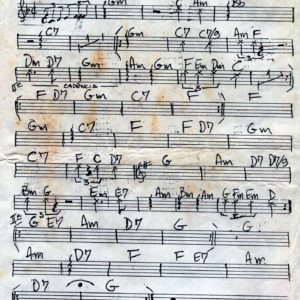 Gm C Am Bb
C7 Gm C7 C7/9 Am F
Dm D7 Gm Am Gm F Em Dm C
CADENCIA
F D7 Gm C7 F
Gm C7 F F D7 Gm
C7 F C D7 G Am D7 D7/9
Bm G Em E7 Am Bm Am G Fm Em D
IIª G E7 Am D7 G G
Am D7 F F E7 Am
D7 G G